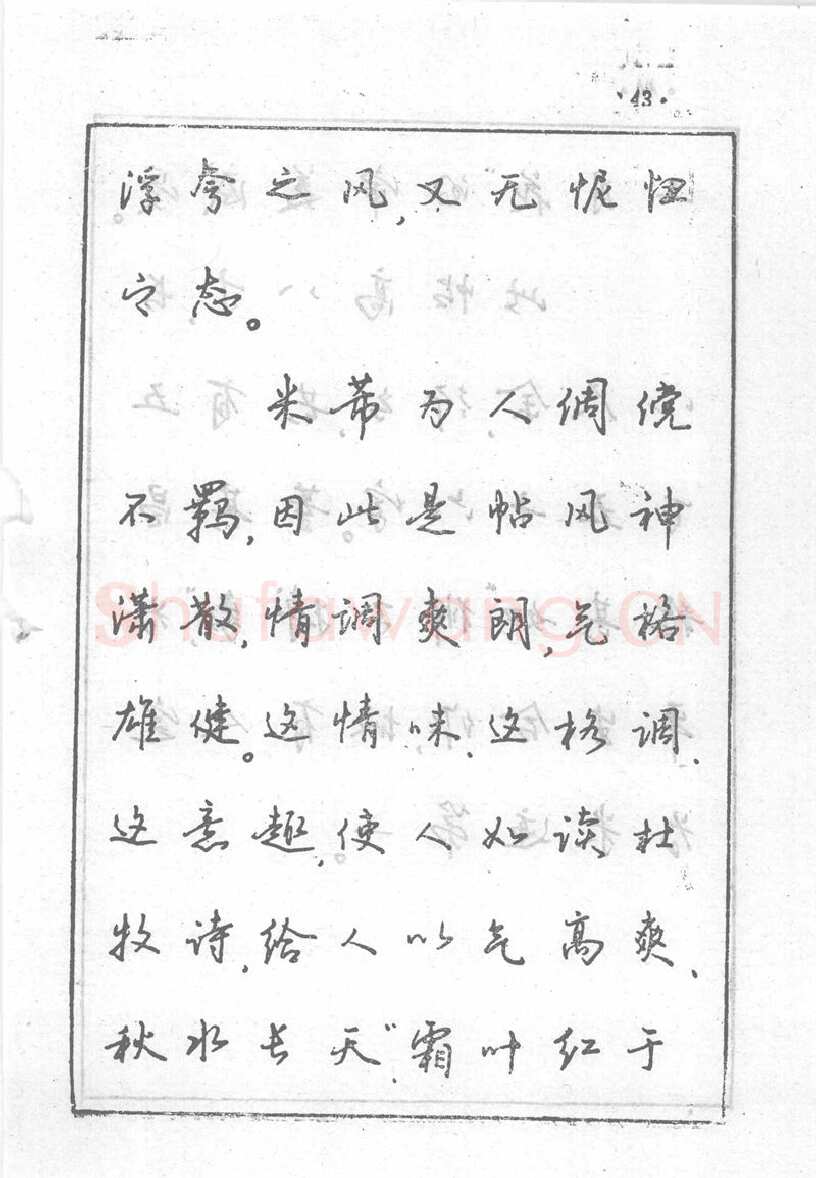 ·43·
浮夸之风,又无忸怩
之态。
米芾为人倜傥
不羁,因此是帖风神
潇散,情调爽朗,气格
雄健。这情味、这格调、
这意趣,使人如读杜
牧诗,给人以气高爽、
秋水长天"霜叶红于
Shufawang.CN